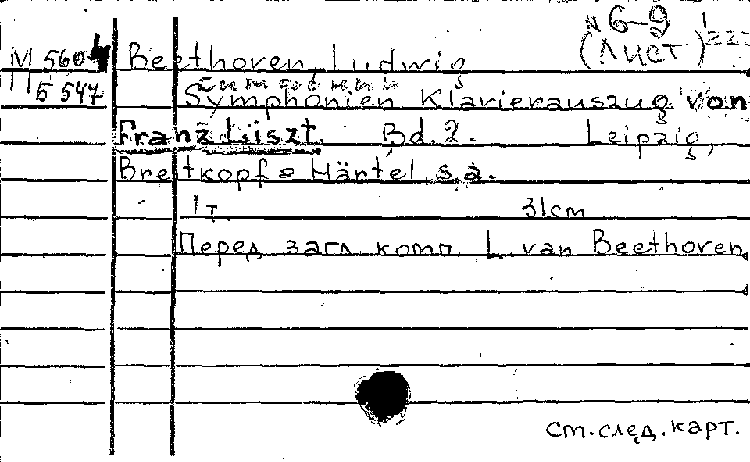 № 6-9
(Лист)
М 5604 Beethoven Ludwig
Симфонии
Б 547 Symphonien Klavierauszug von
Franz Liszt. Bd. 2. Leipzig,
Breitkopf & Härtel s.a.
1 т. 31cm
Перед загл. комп. L. van Beethoven
См. след. карт.